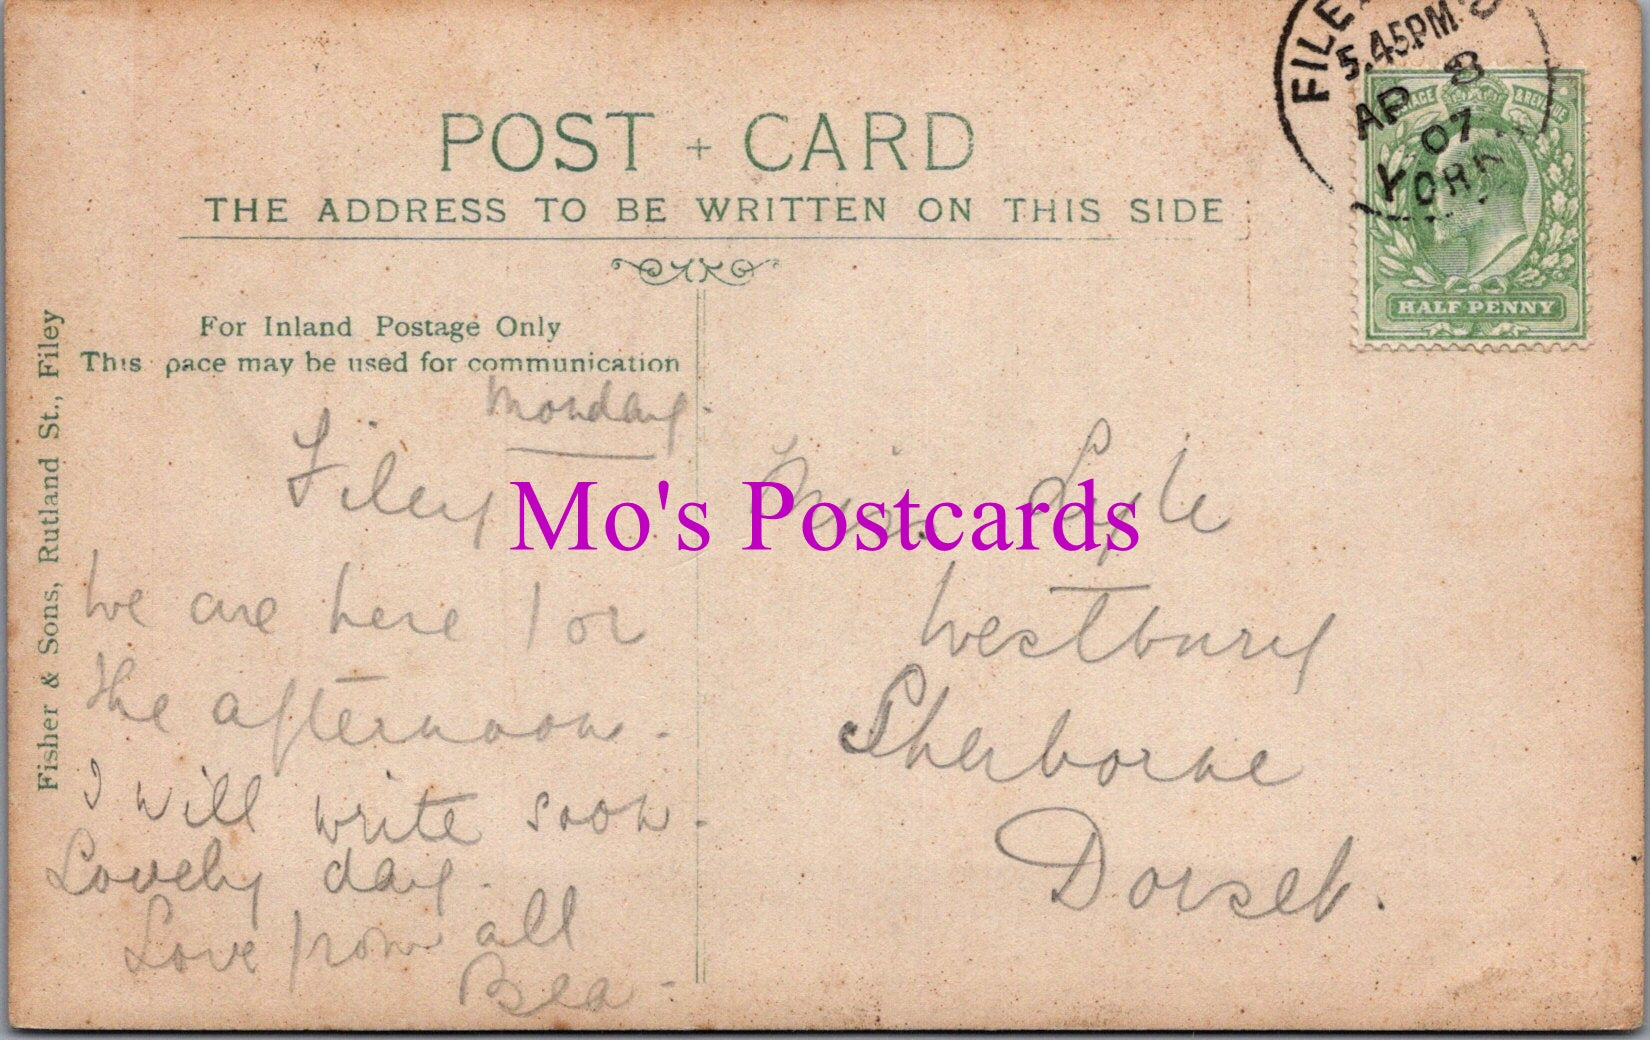 FILEY
5.45PM
AP 8
07
YORK
POSTAGE & REVENUE
HALF PENNY
POST + CARD
THE ADDRESS TO BE WRITTEN ON THIS SIDE
For Inland Postage Only
This pace may be used for communication
Fisher & Sons, Rutland St., Filey
Monday.
Filey
We are here for
the afternoon.
I will write soon.
Lovely day.
Love from all
Bea.
Mo's Postcards
Miss Lyle
Westbury
Sherborne
Dorset.